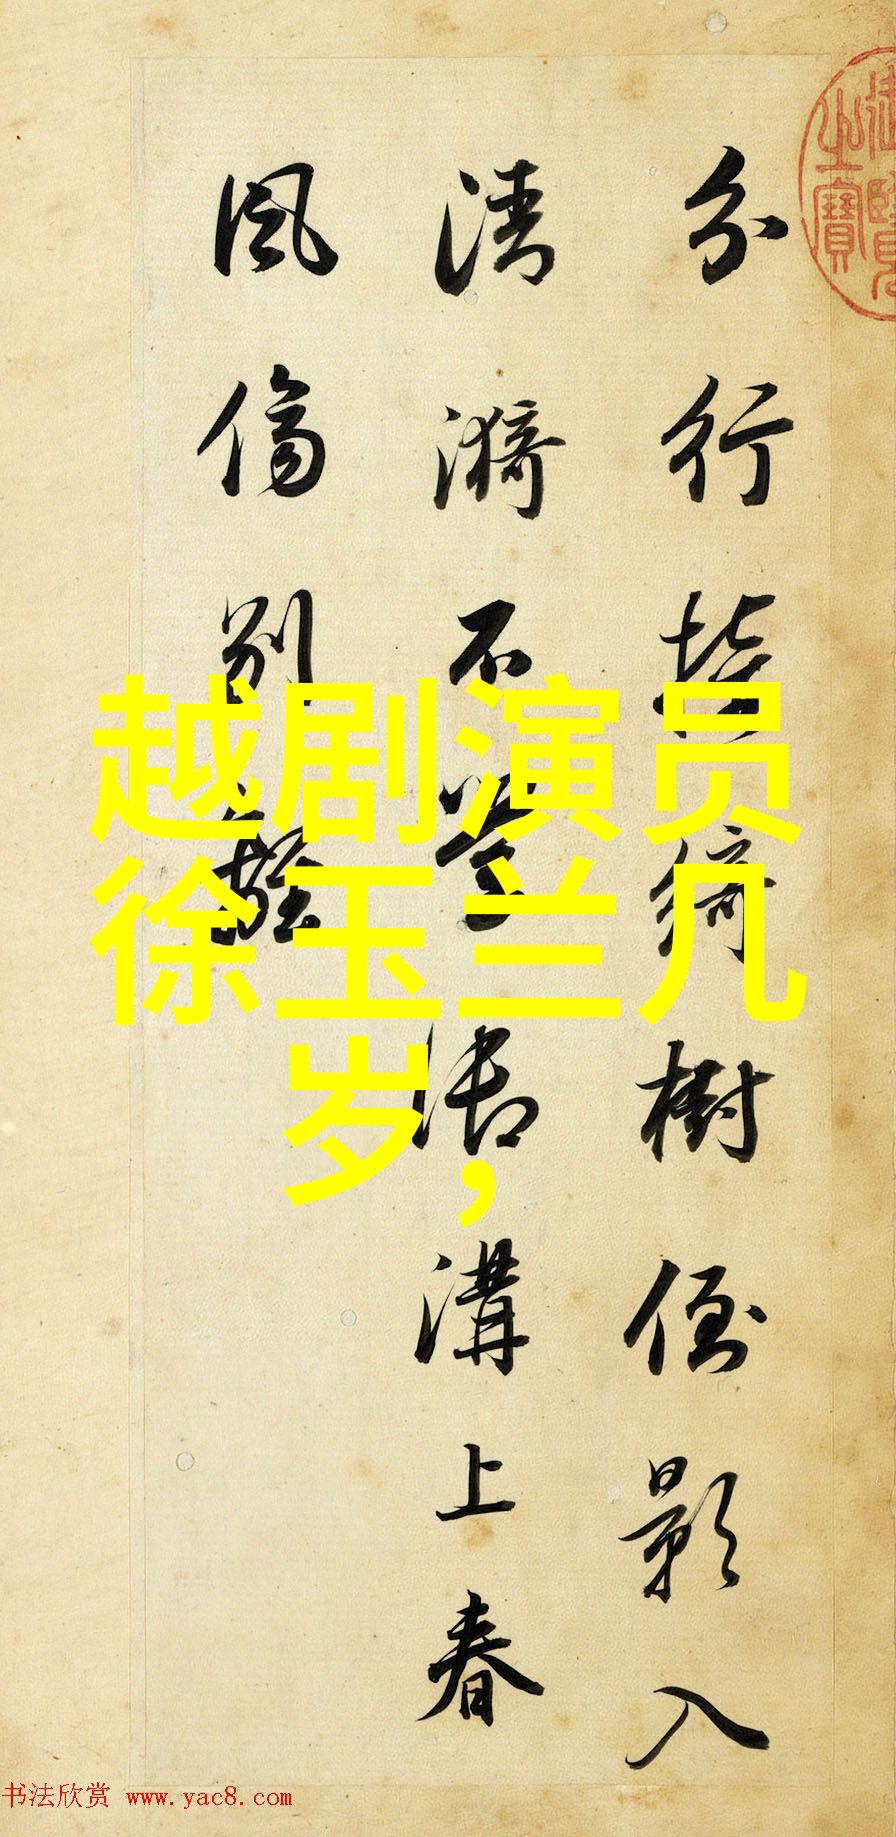 分行接綺樹倒影入
清漪不學御溝上春
風傷別離
之寶
越剧演员
徐玉兰几
岁，
书法欣赏 www.yac8.com